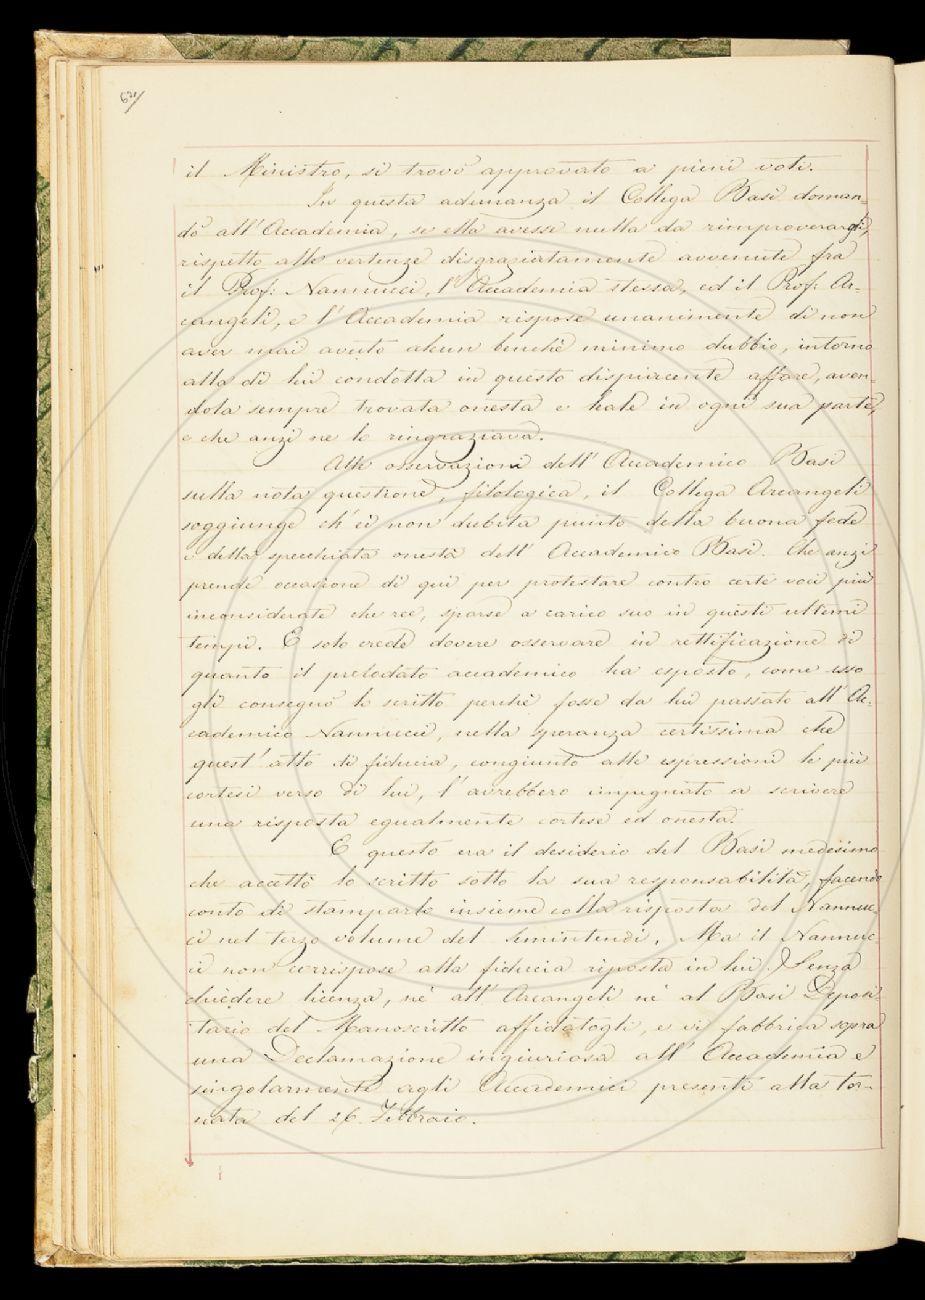 63/
il Ministro, si trovò approvato a pieni voti.
In questa adunanza il Collega Basi doman=
dò all'Accademia, se ella avesse nulla da rimproverargli,
rispetto alle vertenze disgraziatamente avvenute fra
il Prof: Nannucci, l'Accademia stessa, ed il Prof: Ar-
cangeli, e l'Accademia rispose unanimente di non
aver mai avuto alcun benchè minimo dubbio, intorno
alla di lui condotta in questo dispiacente affare, aven-
dola sempre trovata onesta e leale in ogni sua parte,
e che anzi ne lo ringraziava.
Alle osservazioni dell'Accademico Basi
sulla nota questione, filologica, il Collega Arcangeli
soggiunge ch'ei non dubita punto della buona fede
e della specchiata onestà dell'Accademico Basi. Che anzi
prende occasione di qui per protestare contro certe voci più
inconsiderate che ree, sparse a carico suo in questi ultimi
tempi. E solo crede dovere osservare in rettificazione di
quanto il prelodato accademico ha esposto, come esso
gli consegnò lo scritto perchè fosse da lui passato all'Ac=
cademico Nannucci, nella speranza certissima che
quest'atto di fiducia, congiunto alle espressioni le più
cortesi verso di lui, l'avrebbero impegnato a scrivere
una risposta egualmente cortese ed onesta.
E questo era il desiderio del Basi medesimo
che accettò lo scritto sotto la sua responsabilità, facendo
conto di stamparlo insieme colla risposta del Nannuc-
ci nel terzo volume del Simintendi. Ma il Nannuc-
ci non corrispose alla fiducia riposta in lui. Senza
chiedere licenza, nè all'Arcangeli nè al Basi Deposi-
tario del Manoscritto affidatogli, e vi fabbrica sopra
una Declamazione ingiuriosa all'Accademia e
singolarmente agli Accademici presenti alla tor-
nata del 26. Febbraio.